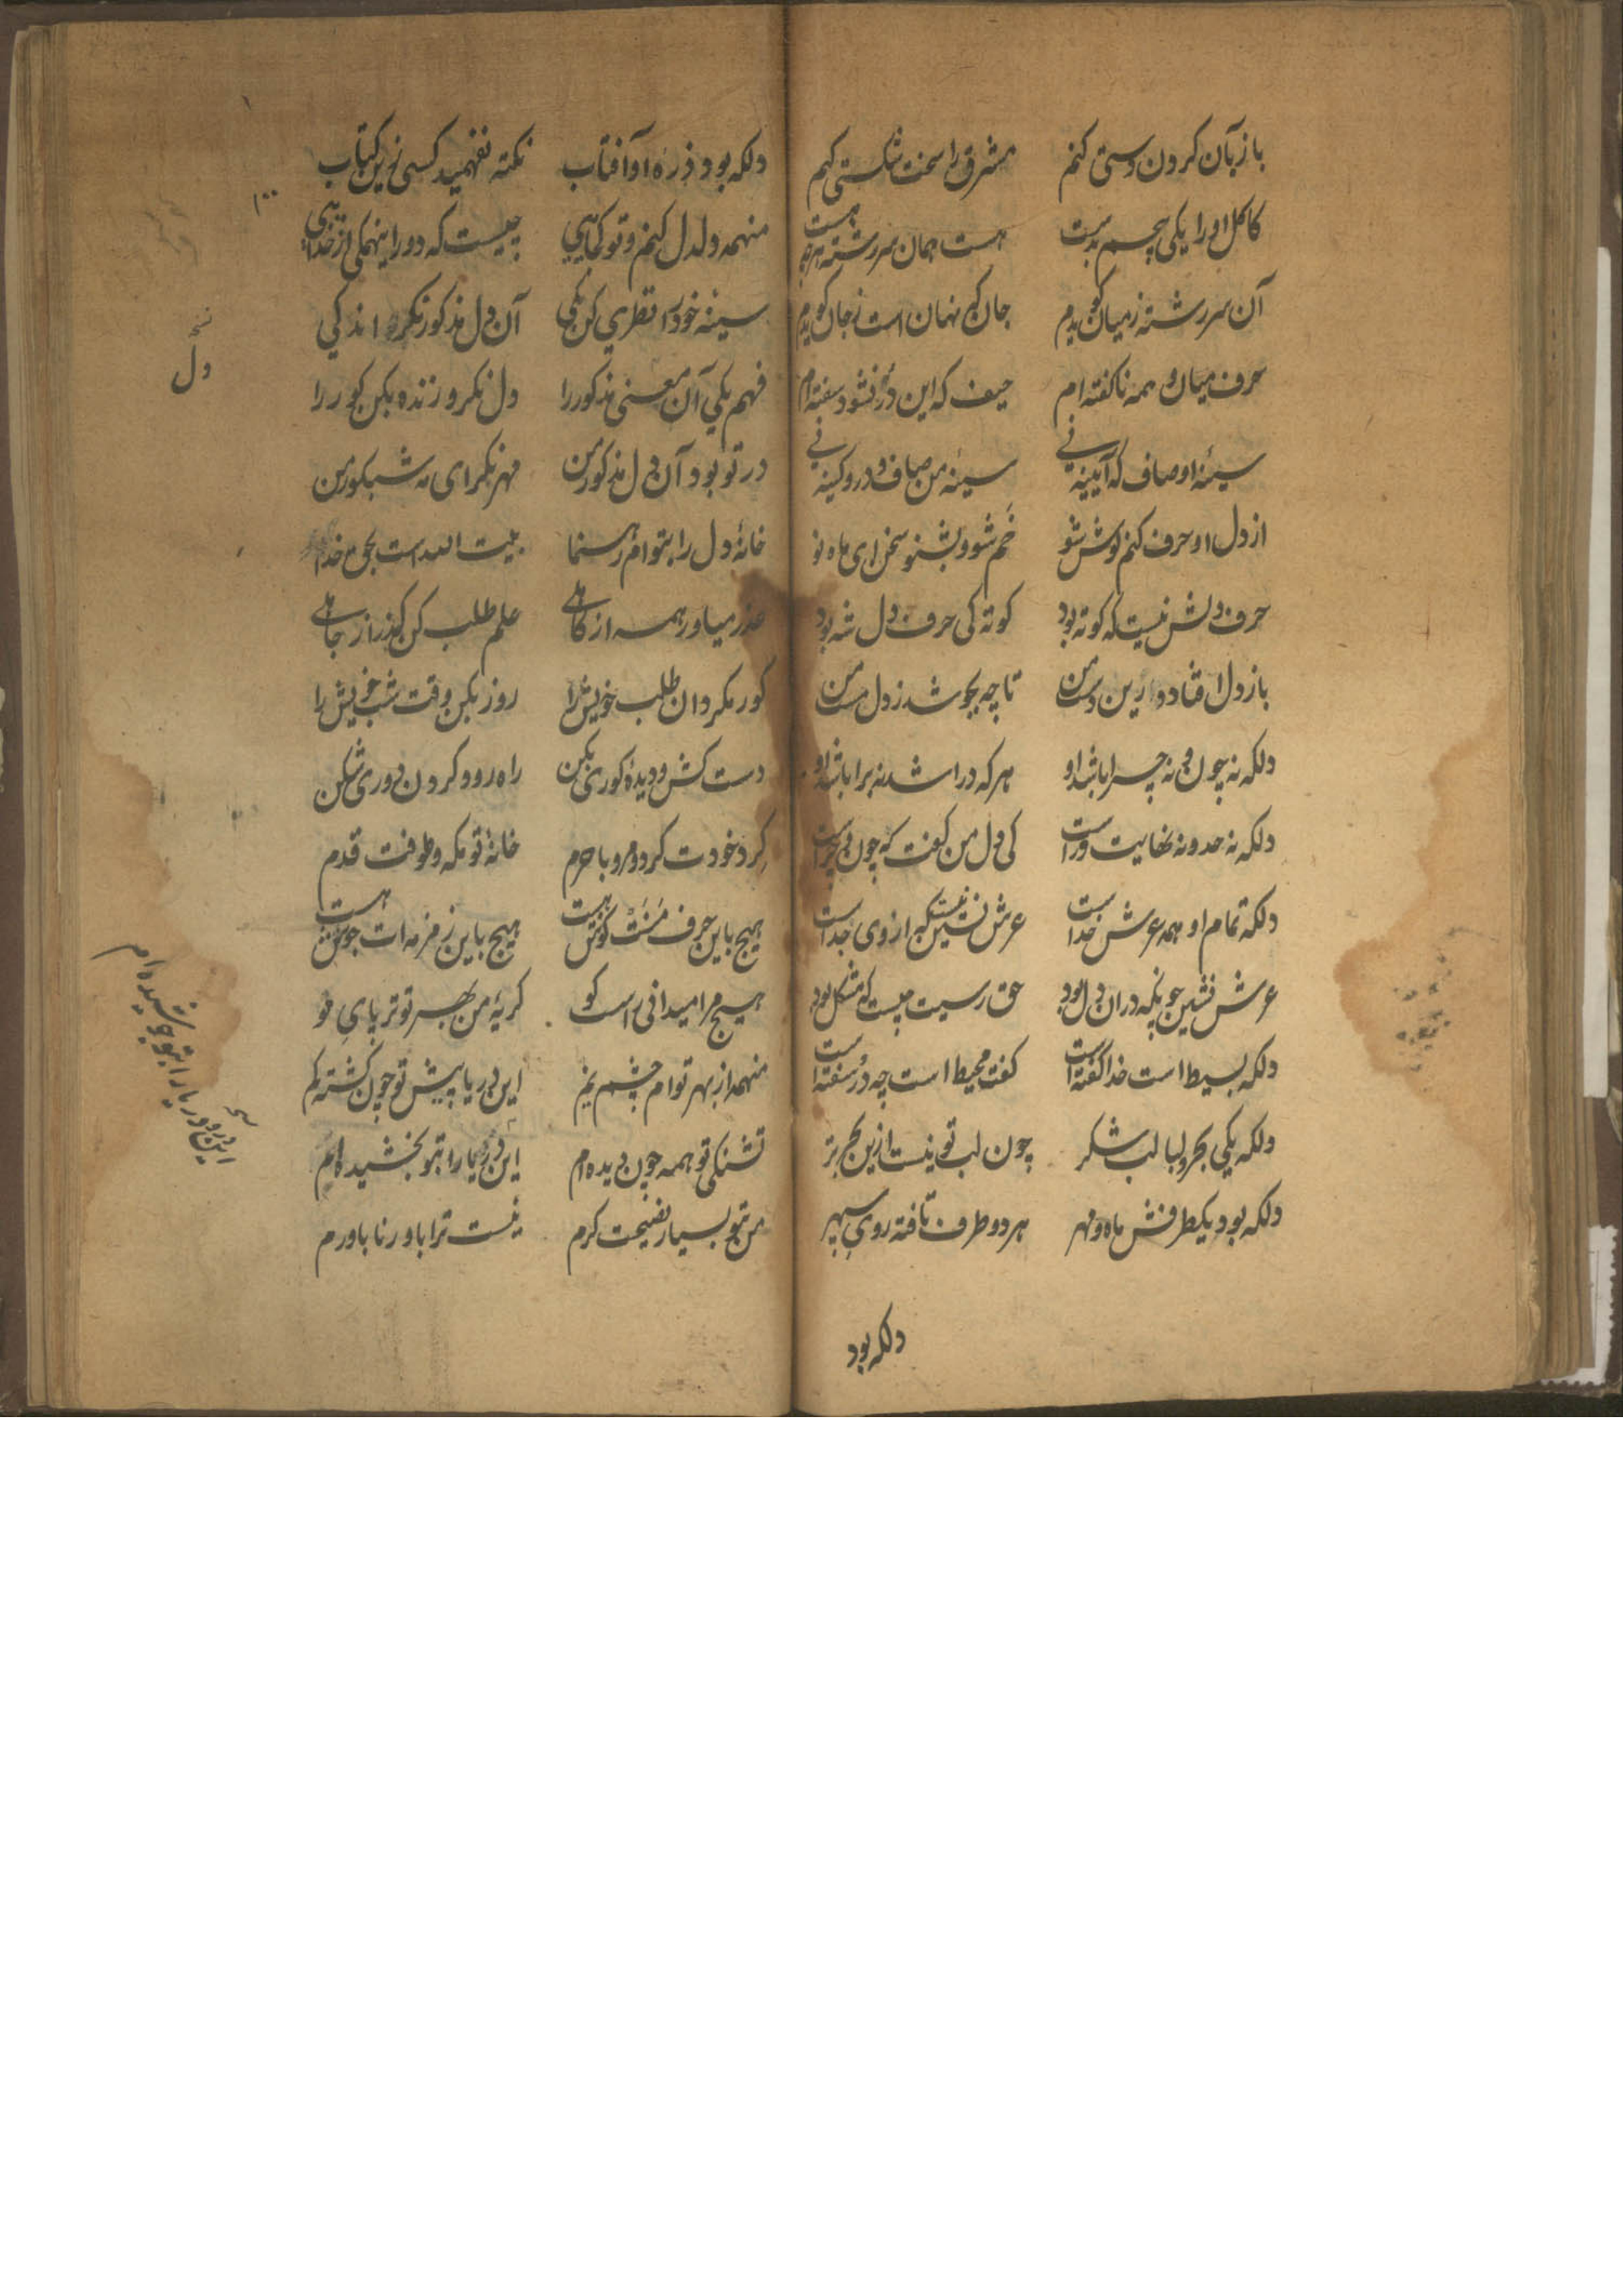 باز بآن کردن دستی کنم مشرق را سخت شکستی کنم
کاکل او را یکی چسم بدست هست همان سررشته
آن سررشته ز میان گویدم جان که نهان است ز جان گویدم
حرف میان همه ناکفته ام حیف که این در نشود سفته ام
سینهٔ او صاف که آیینه نی سینه من صاف و در و کینه نی
از دل او حرف کنم گوش شو خم شو و بشنو سخن ای ماه نو
حرف دلش نیست که کوته بود کوته کی حرف دل شه بود
باز دل افتاد در این دست من تا چه بجوشد ز دل مست من
دلکه نه چون و نه چرا باشد او هر که در اشد نه برا باشد او
دلکه نه حد و نه نهایت وراست کی دل من کفت که چون و چراست
دلکه تمام او همه عرش خداست عرش نشین نیست که از وی جداست
عرش نشین چونکه در آن دل بود حق رسیت چیست که مشکل بود
دلکه بسیط است خدا گفته است کفت محیط است چه در سفته است
دلکه یکی بحر لبالب شکر چون لب تو نیست ازین بحر تر
دلکه بود یکطرفش ماه و مهر هر دو طرف تافته روی سپهر
دلکه بود
دلکه بود ذره او آفتاب نکته نفهمید کسی زین کتاب
۱۰۰
منهمه دلدل کنم و تو کاهی چیست که دور اینهمکی از خداهی
سینه خود را نظری کن یکی آن دل مذکور نگر اندکی
نسخه
دل
فهم یکی آن معنی مذکور را دل نکر و زنده بکن کور را
در تو بود آن دل مذکور من مهر نگر ای نه شبکور من
خانهٔ دل را بتوام رهنما بیت الله است بحق خدا
عذر میاور همه از کاهلی علم طلب کن گذر از جاهلی
کور مکردان طلب خویش را روز بکن وقت شب خویش را
دست کش و دیدهٔ کوری بکن راه رو و کردن دوری شکن
گرد خودت کرد و مرو با حرم خانهٔ تو مکه و طوفت قدم
هیچ باین حرف منت گوش هست هیچ باین زمزمه ات جوش هست
هیچ مرا میدانی راست کو کریهٔ من بهر تو تر پای مو
منهمه از بهر توام چشم نم این دریا پیش تو چون کشته کم
تشنکی تو همه چون دیده ام این دریا را بتو بخشیده ام
نسخه
این در دریا را بتو بخشیده ام
من بتو بسیار نصیحت کرم نیست ترا باور نا باورم